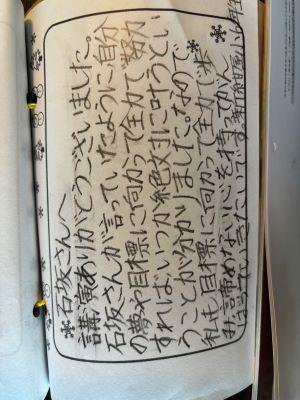 石坂さんへ
講演ありがとうございました。
石坂さんが言っていたように自分
の夢や目標に向かって全力で努力
すればいつか絶対に叶うとい
うことが分かりました。なので
私も目標に向かって全力で歩
み諦めない心を持ってがん
ばっていきたいです